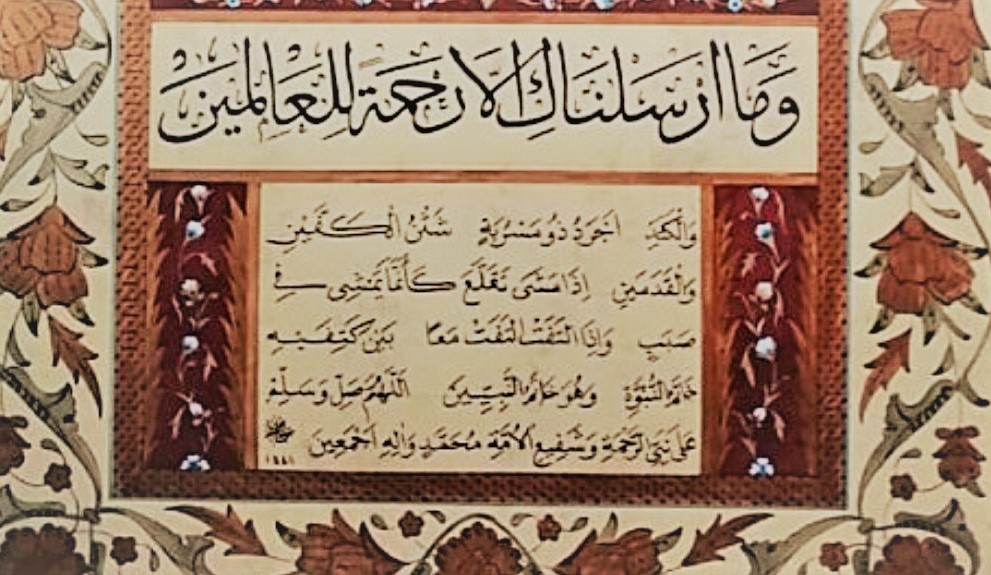 وَمَا اَرْسَلْنَاكَ اِلَّا رَحْمَةً لِلْعَالَمِينَ
وَالْكَتَدِ اَجْرَدُ ذُو مَسْرُبَةٍ شَثْنُ الْكَفَّيْنِ
وَالْقَدَمَيْنِ اِذَا مَشَى تَقَلَّعَ كَأَنَّمَا يَمْشِى فِى
صَبَبٍ وَاِذَا الْتَفَتَ الْتَفَتَ مَعًا بَيْنَ كَتِفَيْهِ
خَاتَمُ النُّبُوَّةِ وَهُوَ خَاتَمُ النَّبِيِّينَ اَللّٰهُمَّ صَلِّ وَسَلِّمْ
عَلَى نَبِيِّ الرَّحْمَةِ وَشَفِيعِ الْاُمَّةِ مُحَمَّدٍ وَاٰلِهِ اَجْمَعِينَ